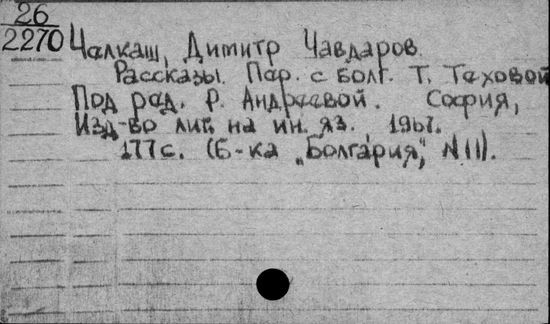 26
2270 Чалкаш, Димитр Чавдаров.
Рассказы. Пер. с болг. Т. Таховой
Под ред. Р. Андреевой. София,
Изд-во лит. на ин. яз.,
177 с. (Б-ка „Болгария", N 11).